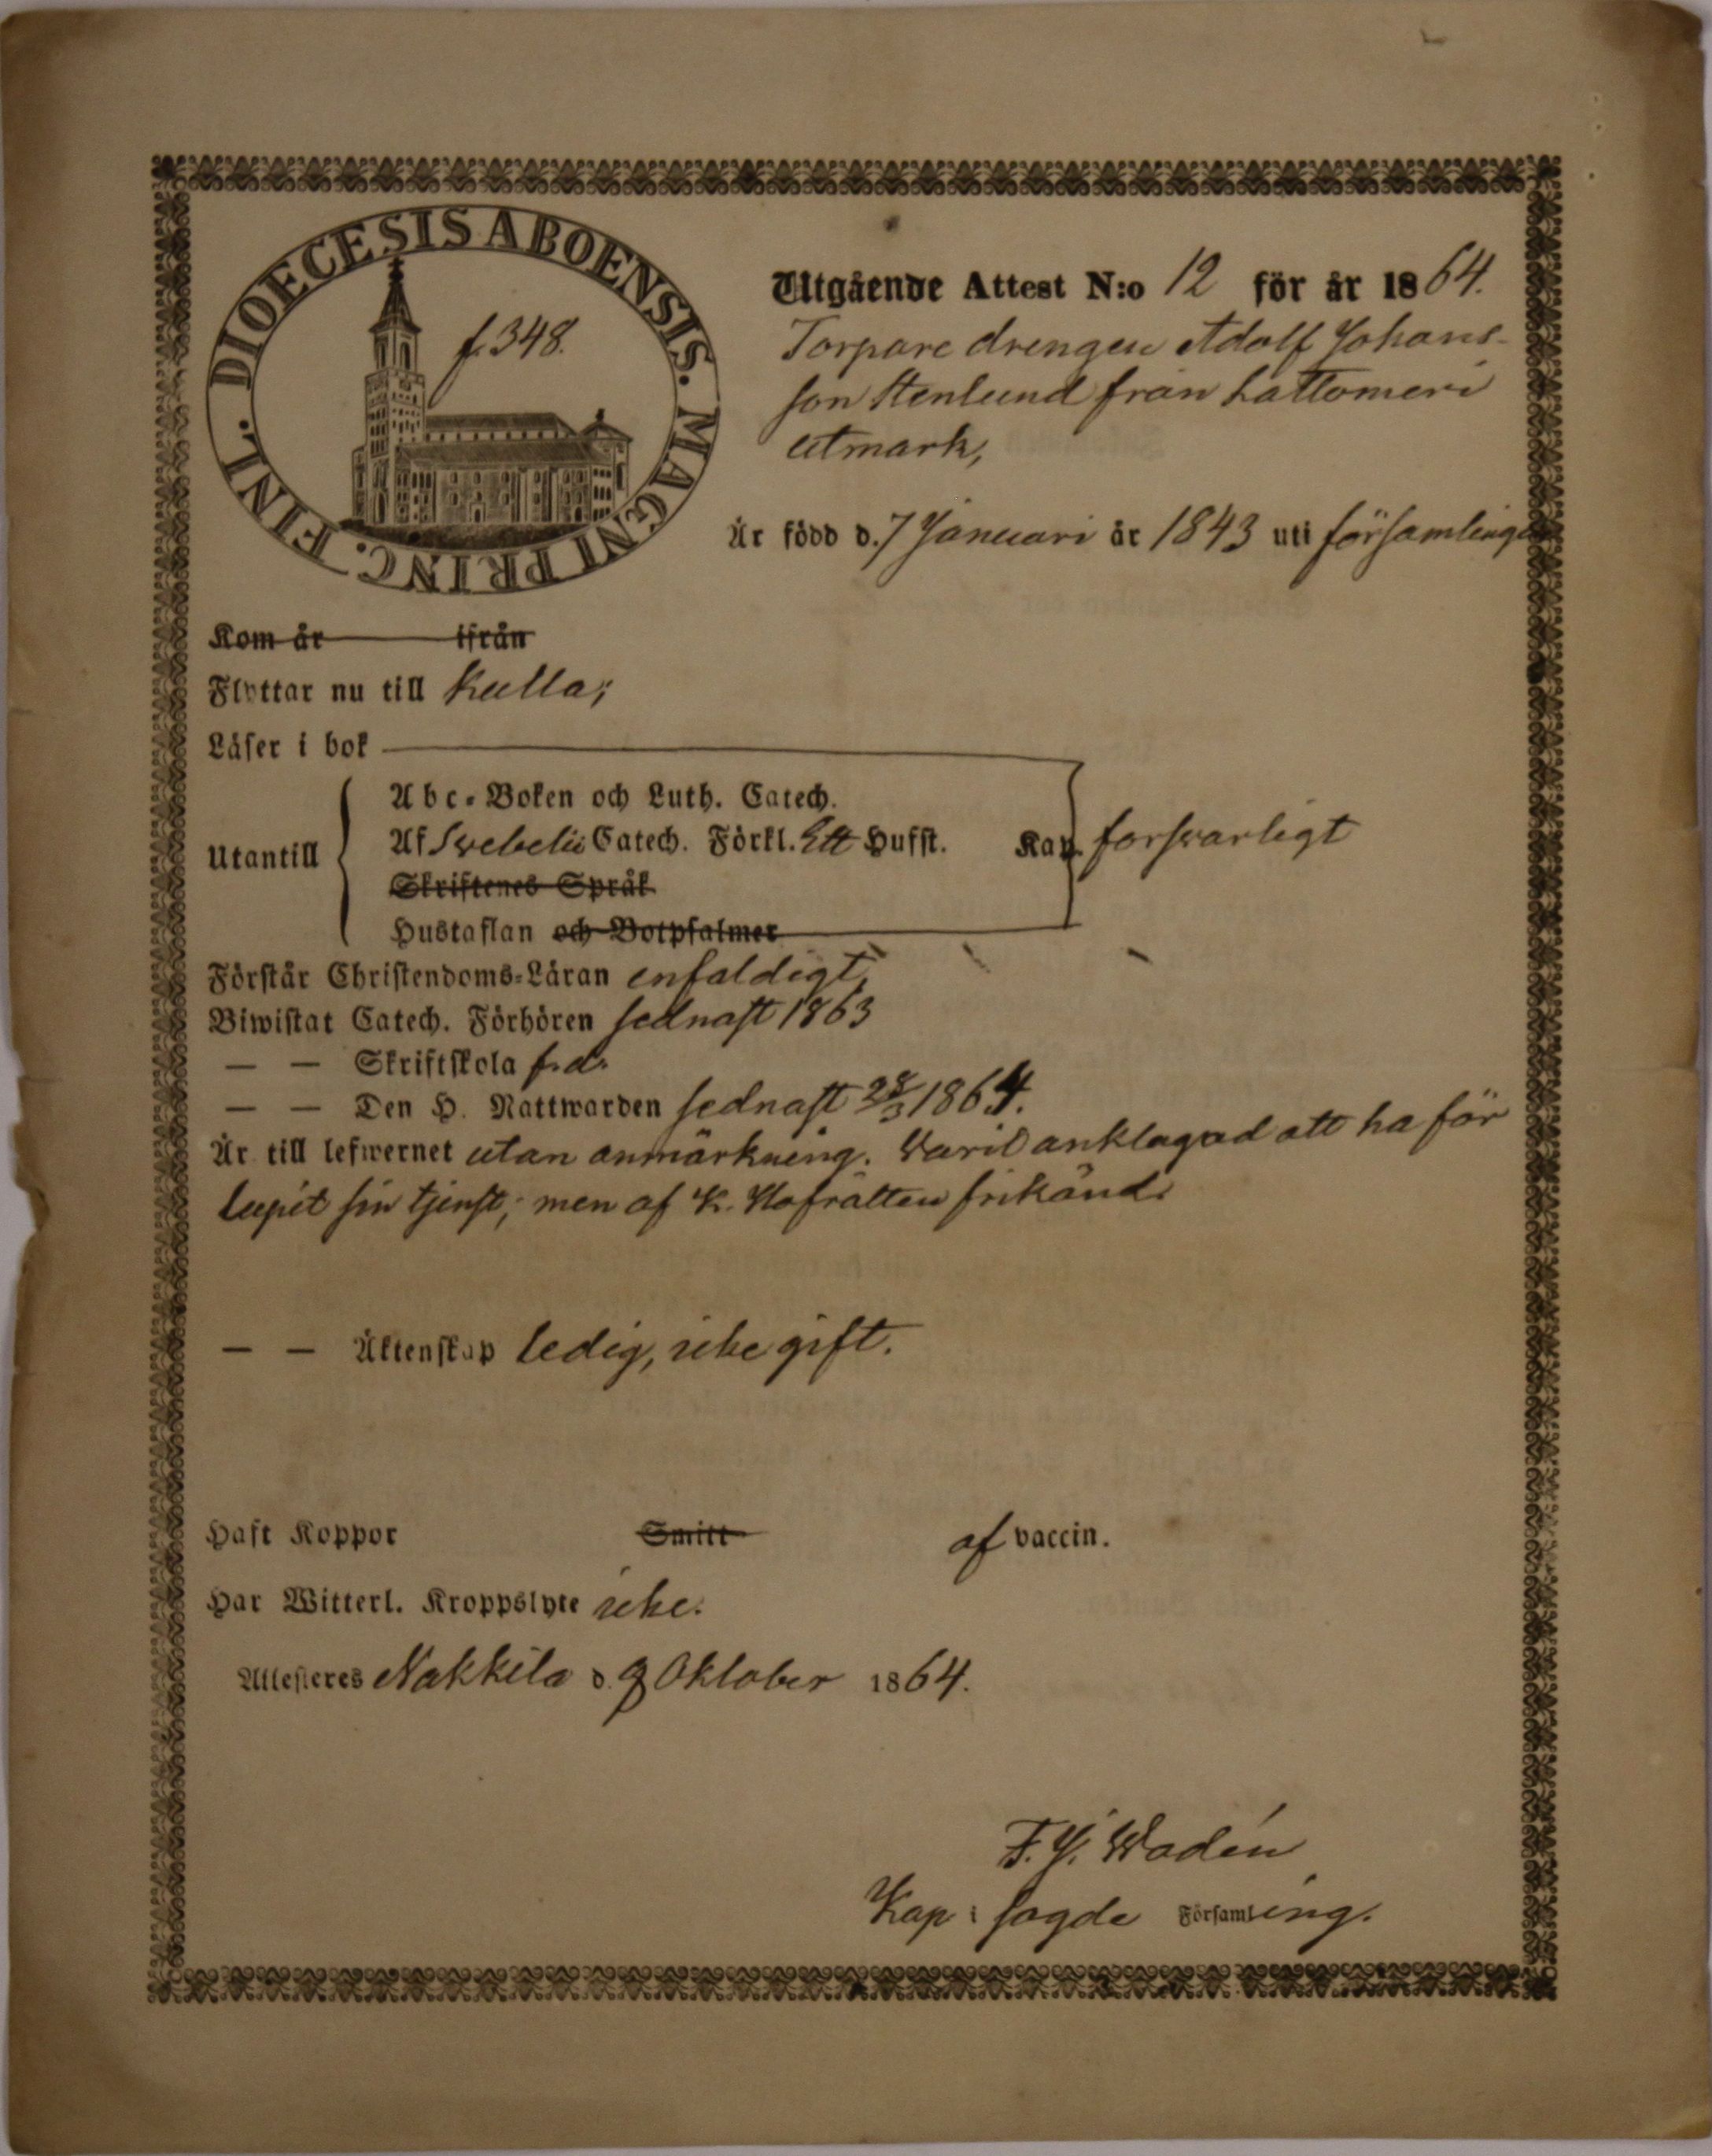 DIOECESIS ABOENSIS. MAGNI PRINC. FINL.
f. 348.
Utgående Attest N:o 12 för år 1864.
Torpare drengen Adolf Johans-
son Stenlund från Lattomeri
utmark,
Är född d. 7 Januari år 1843 uti församlingen
Kom år ifrån
Flyttar nu till Kulla;
Läser i bok
Utantill
Abc-Boken och Luth. Catech.
Af Svebelii Catech. Förkl. Ett Hufst. Kap. forsvarligt
Skriftenes Språk
Hustaflan och Botpsalmer
Förstår Christendoms-Läran enfaldigt,
Biwistat Catech. Förhören sednast 1863
— — Skriftskola f.d.
— — Den H. Nattwarden sednast 28/3 1864.
Är till lefwernet utan anmärkning. Varit anklagad att ha för
lupit sin tjenst; men af K. Hofrätten frikänd.
— — Äktenskap ledig, icke gift.
Haft Koppor Smitt af vaccin.
Har Witterl. Kroppslyte icke.
Attesteres Nakkila d. Oktober 1864.
F. J. Wadén
Kap i sagde Församling.